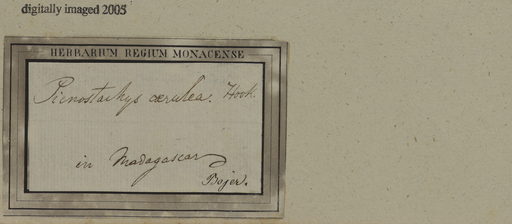 digitally imaged 2005
HERBARIUM REGIUM MONACENSE
Picnostachys cœrulea. Hook.
in Madagascar
Bojer.